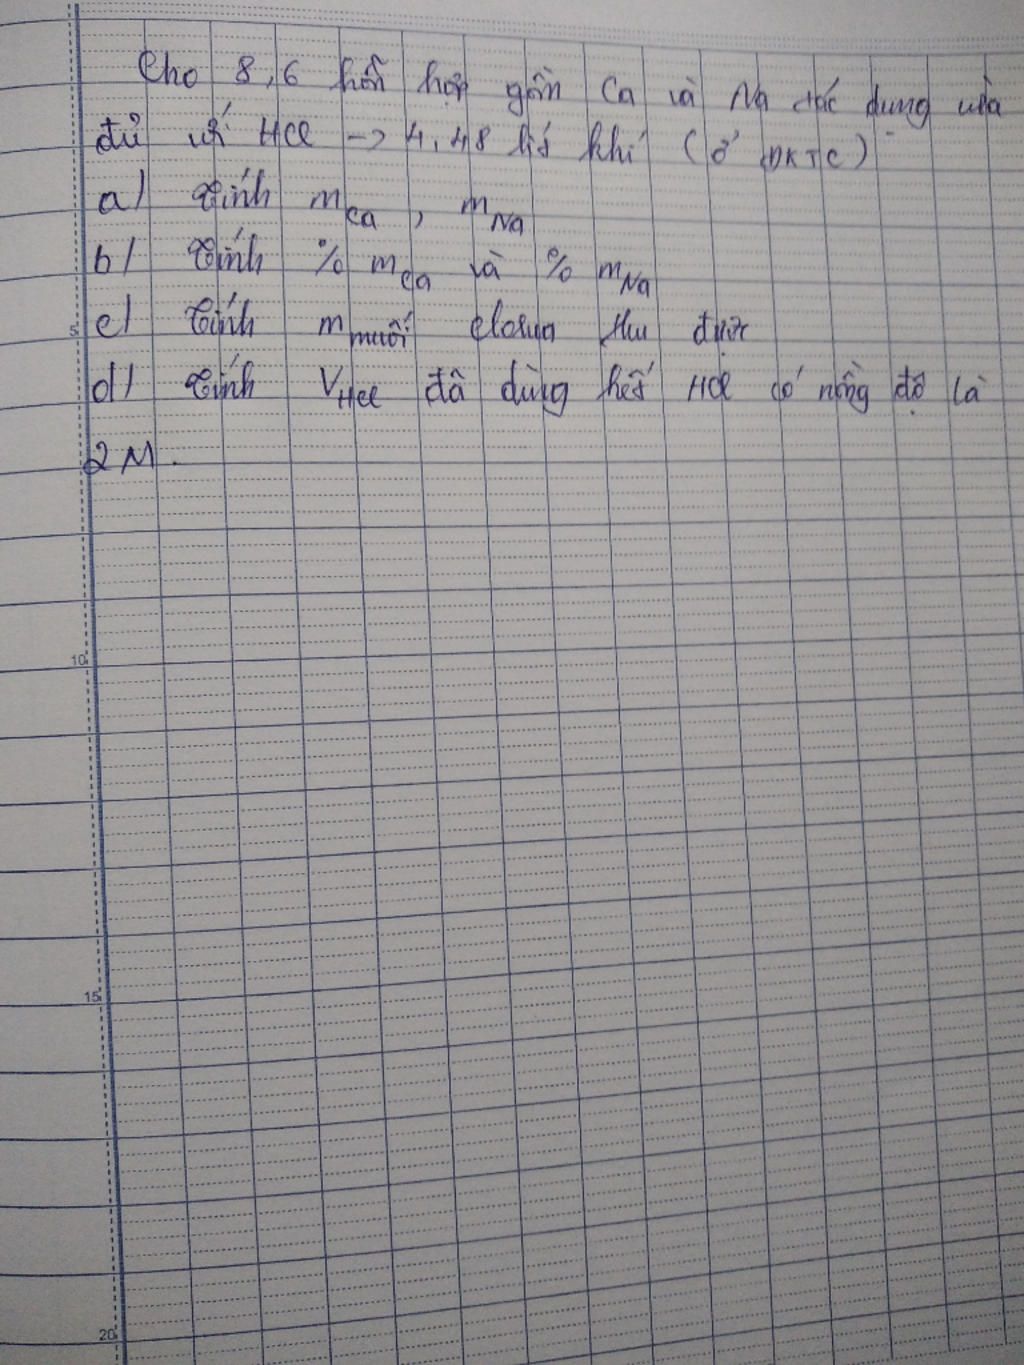 Cho 8,6 hỗn hợp gồm Ca và Na tác dụng vừa
đủ với HCl -> 4,48 lít khí (ở ĐKTC)
a) Tính m Ca, m Na
b) Tính % m Ca và % m Na
c) Tính m muối clorua thu được
d) Tính V HCl đã dùng hết HCl có nồng độ là
2M.
5
10
15
20